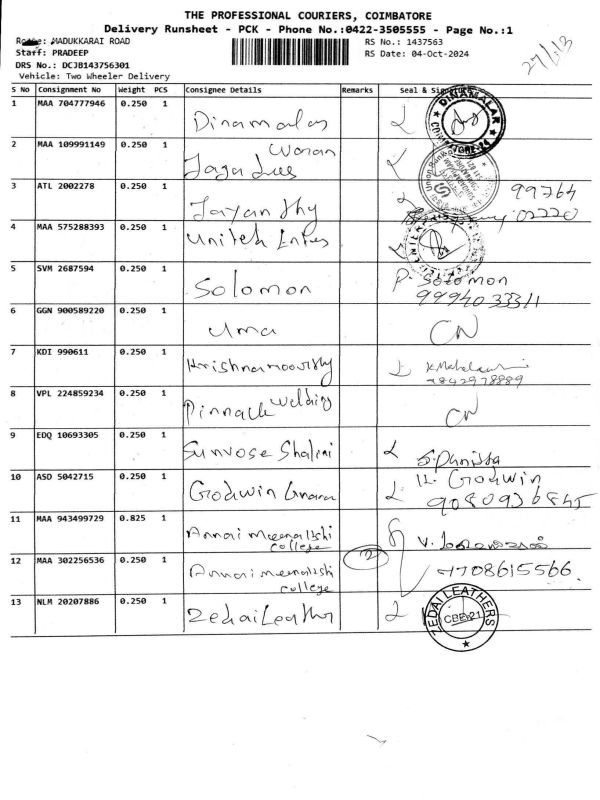 THE PROFESSIONAL COURIERS, COIMBATORE
Delivery Runsheet - PCK - Phone No.:0422-3505555 - Page No.:1
27/13
MADUKKARAI ROAD
RS No.: 1437563
Staff: PRADEEP
RS Date: 04-Oct-2024
DRS No.: DCJB143756301
Vehicle: Two Wheeler Delivery
S No Consignment No Weight PCS Consignee Details Remarks Seal &
1 MAA 704777946 0.250 1 Dinamalar DINAMALAR
2 MAA 109991149 0.250 1
3 ATL 2002278 0.250 1 Jayanthy 99764
02220
4 MAA 575288393 0.250 1 United
5 SVM 2687594 0.250 1 Solomon P. Solomon
9994033311
6 GGN 900589220 0.250 1 Uma CN
7 KDI 990611 0.250 1 Krishnamoorthy
9842978889
8 VPL 224859234 0.250 1 Pinnacle Welding CN
9 EDQ 10693305 0.250 1 Sunrose Shalini
10 ASD 5042715 0.250 1 Godwin Gnana Godwin
9080936845
11 MAA 943499729 0.825 1 Annai meenakshi
college
12 MAA 302256536 0.250 1 Annai meenakshi
college 7708615566
13 NLM 20207886 0.250 1 Zedai Leather ZEDAI LEATHERS
CBE-21